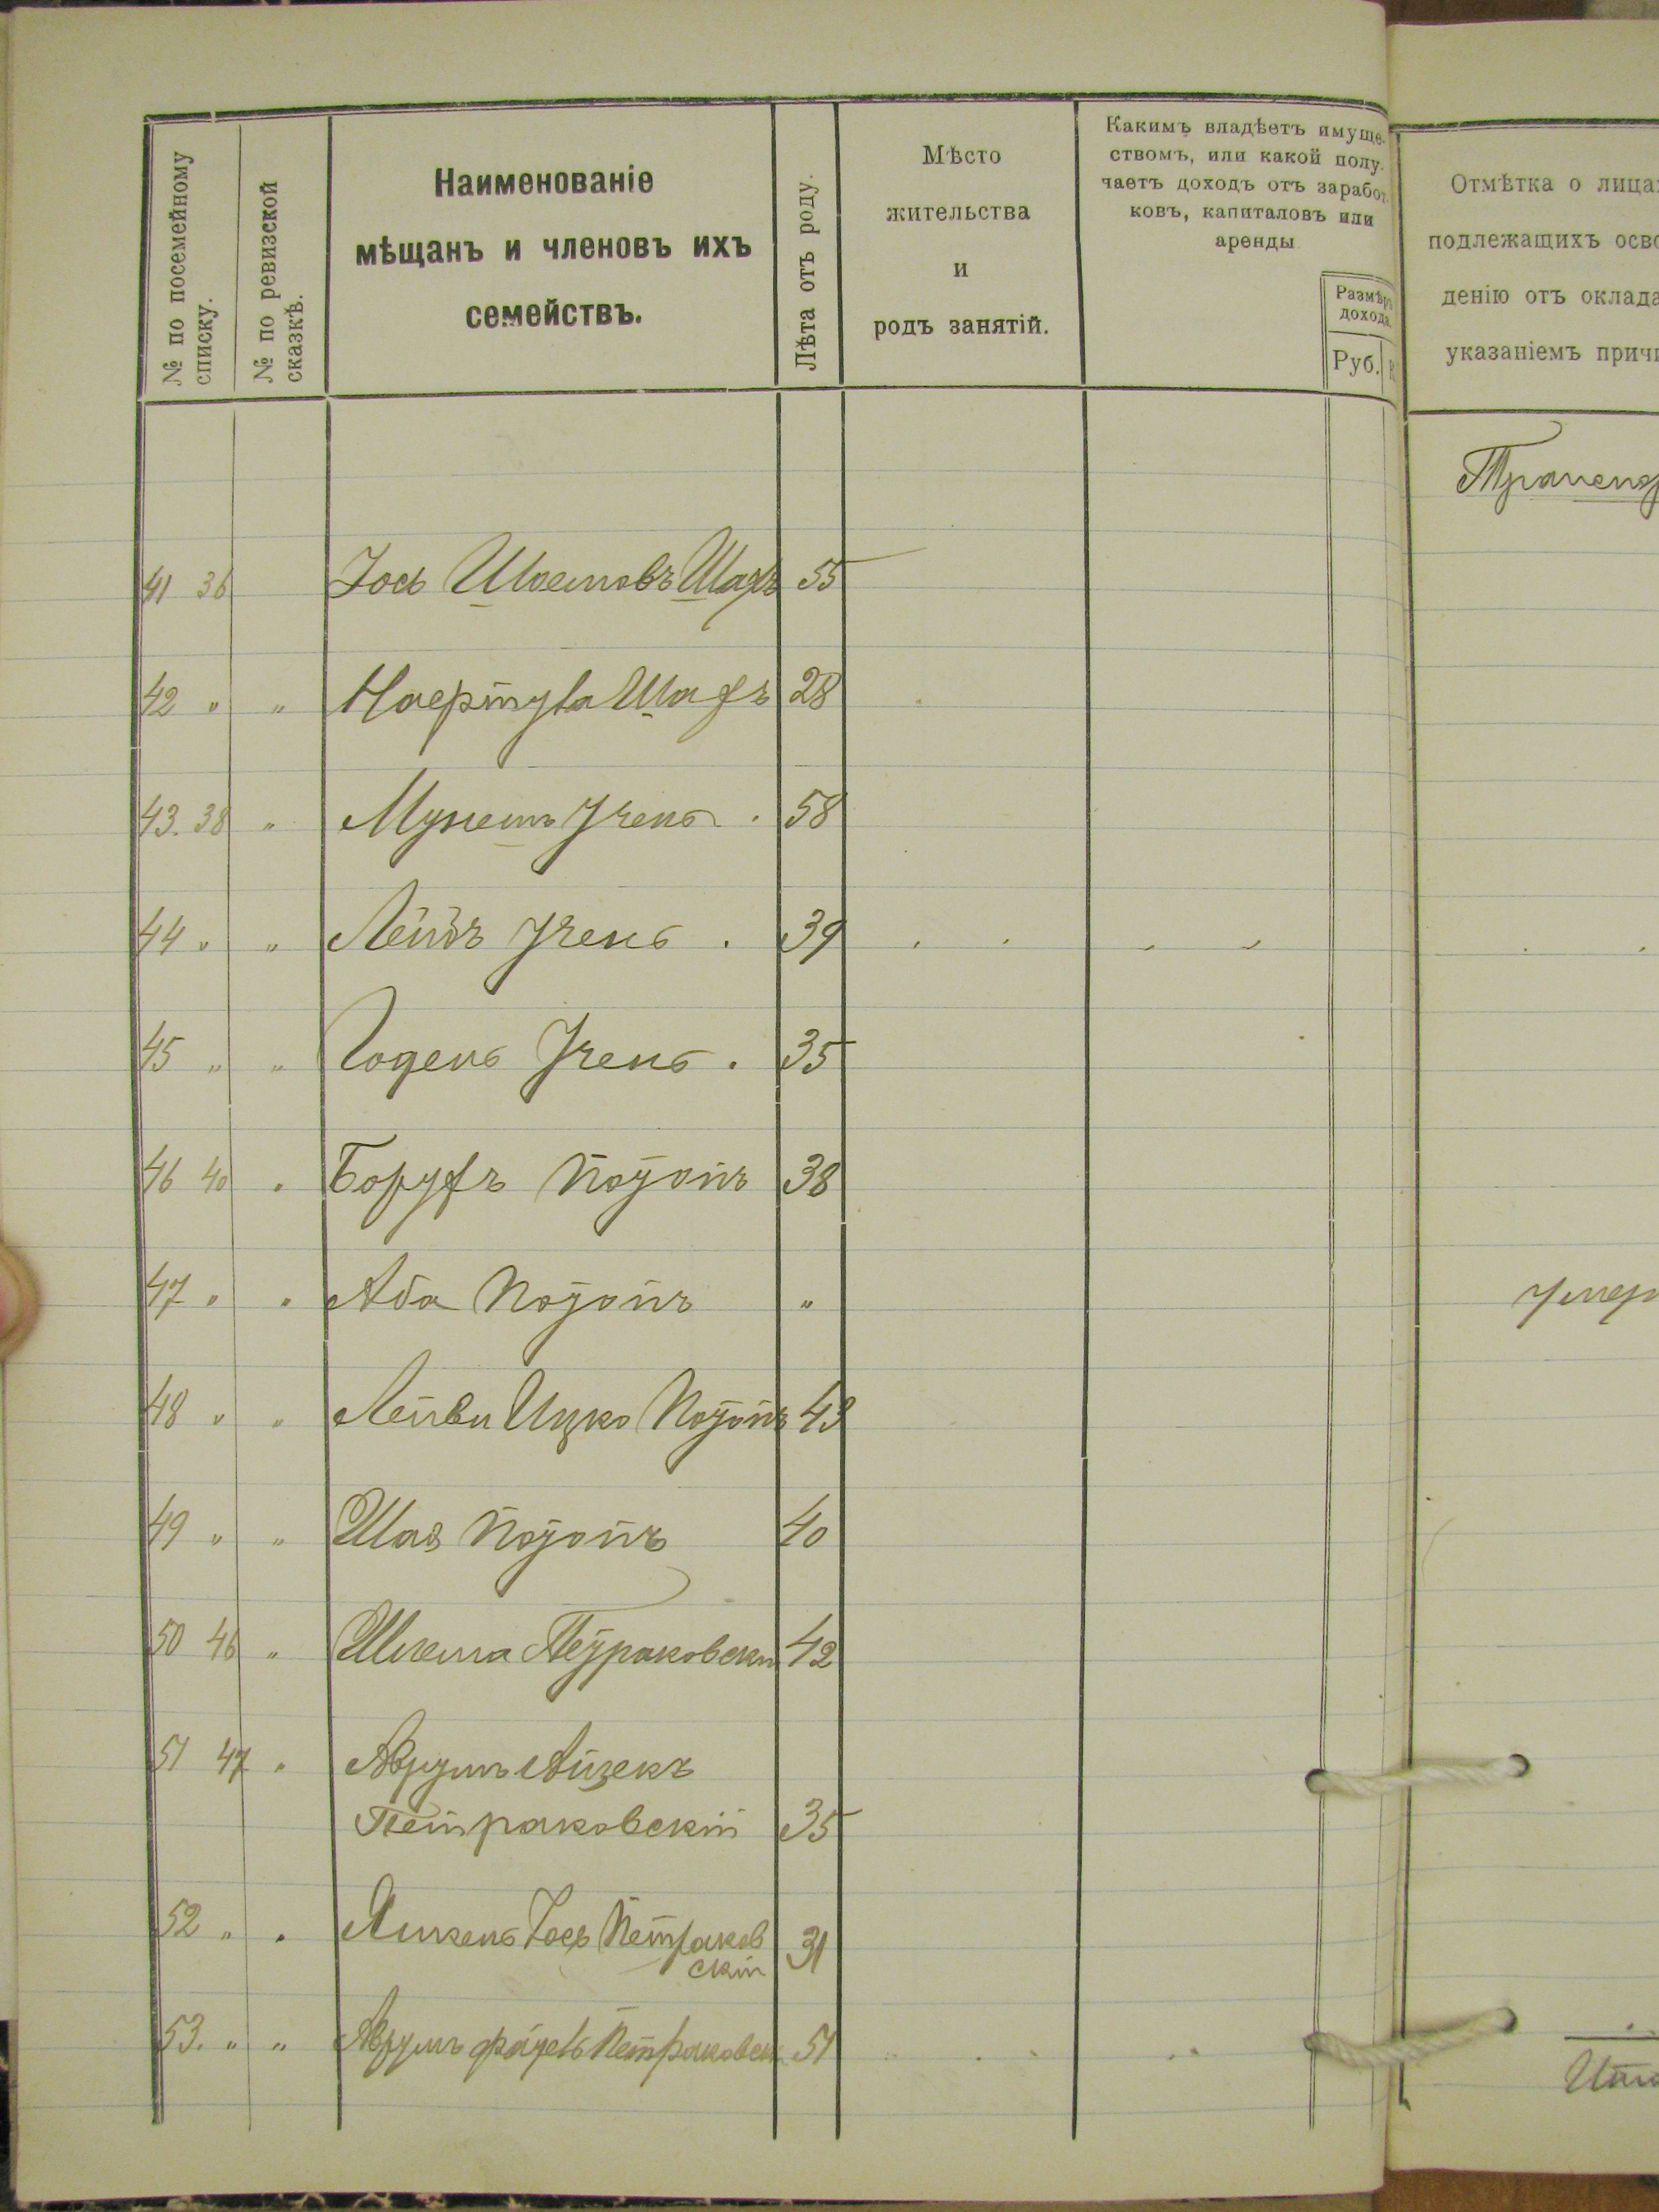 № по посемейному
списку.
№ по ревизской
сказкѣ.
Наименованіе
мѣщанъ и членовъ ихъ
семействъ.
Лѣта отъ роду.
Мѣсто
жительства
и
родъ занятій.
Какимъ владѣетъ имуще-
ствомъ, или какой полу-
чаетъ доходъ отъ заработ-
ковъ, капиталовъ или
аренды
Размѣръ
дохода.
Руб.
Отмѣтка о лица
подлежащихъ осво
денію отъ оклада
указаніемъ причи
Транспор
41 36 Іось Шаемовъ Шафъ 55
42 " " Шафъ 28
43. 38 " Учень . 58
44 " " Лейбъ Учень . 39
45 " " Годель Учень . 35
46 40 " Борухъ Потопъ 38
47 " " Аба Потопъ "
Умер
48 " " Лейви Ицко Потопъ 43
49 " " Шая Потопъ 40
50 46 " Шлема Петраковскій 42
51 47 " Аврумъ Айзекъ
Петраковскій 35
52 " " Янкель Іось Петраков
скій 31
53. " " Аврумъ Петраковск 51
Итог